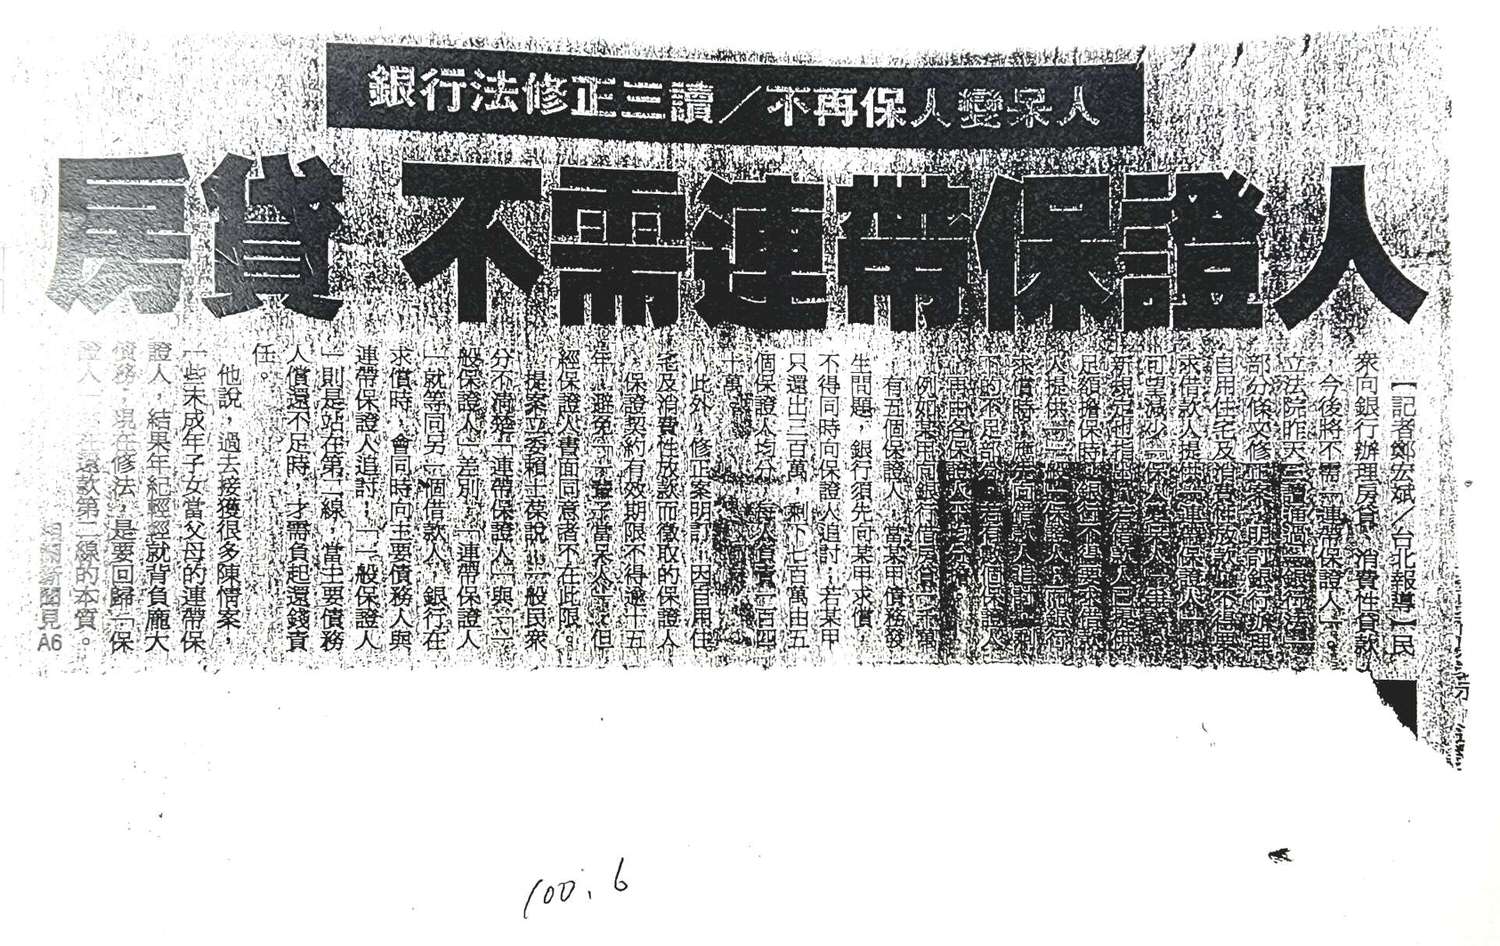 銀行法修正三讀／不再保人變呆人
房貸 不需連帶保證人
【記者鄭宏斌／台北報導】民
眾向銀行辦理房貸、消費性貸款
，今後將不需「連帶保證人」。
立法院昨天三讀通過「銀行法」
部分條文修正案，明訂銀行辦理
自用住宅及消費性放款，不得要
求借款人提供「連帶保證人」，
可望減少「保人變呆人」
新規定也指出，若借款人已提供
足額擔保時，銀行不得要求借款
人提供「一般保證人」，而銀行
求償時，應先向借款人追討，剩
下的不足部分，若有數個保證人
，再由各保證人平均分擔。
例如某甲向銀行借房貸一千萬
，有五個保證人，當某甲債務發
生問題，銀行須先向某甲求償，
不得同時向保證人追討；若某甲
只還出三百萬，剩下七百萬由五
個保證人均分，每人負責一百四
十萬。
此外，修正案明訂，因自用住
宅及消費性放款而徵取的保證人
，保證契約有效期限不得逾十五
年，避免一輩子當保人，但
經保證人書面同意者不在此限。
提案立委賴士葆說，一般民眾
分不清楚「連帶保證人」與「一
般保證人」差別，「連帶保證人
」就等同另一個借款人，銀行在
求償時，會同時向主要債務人與
連帶保證人追討；「一般保證人
」則是站在第二線，當主要債務
人償還不足時，才需負起還錢責
任。
他說，過去接獲很多陳情案，
一些未成年子女當父母的連帶保
證人，結果年紀輕輕就背負龐大
債務，現在修法，是要回歸「保
證人」是在還款第二線的本質。
相關新聞見A6
100.6